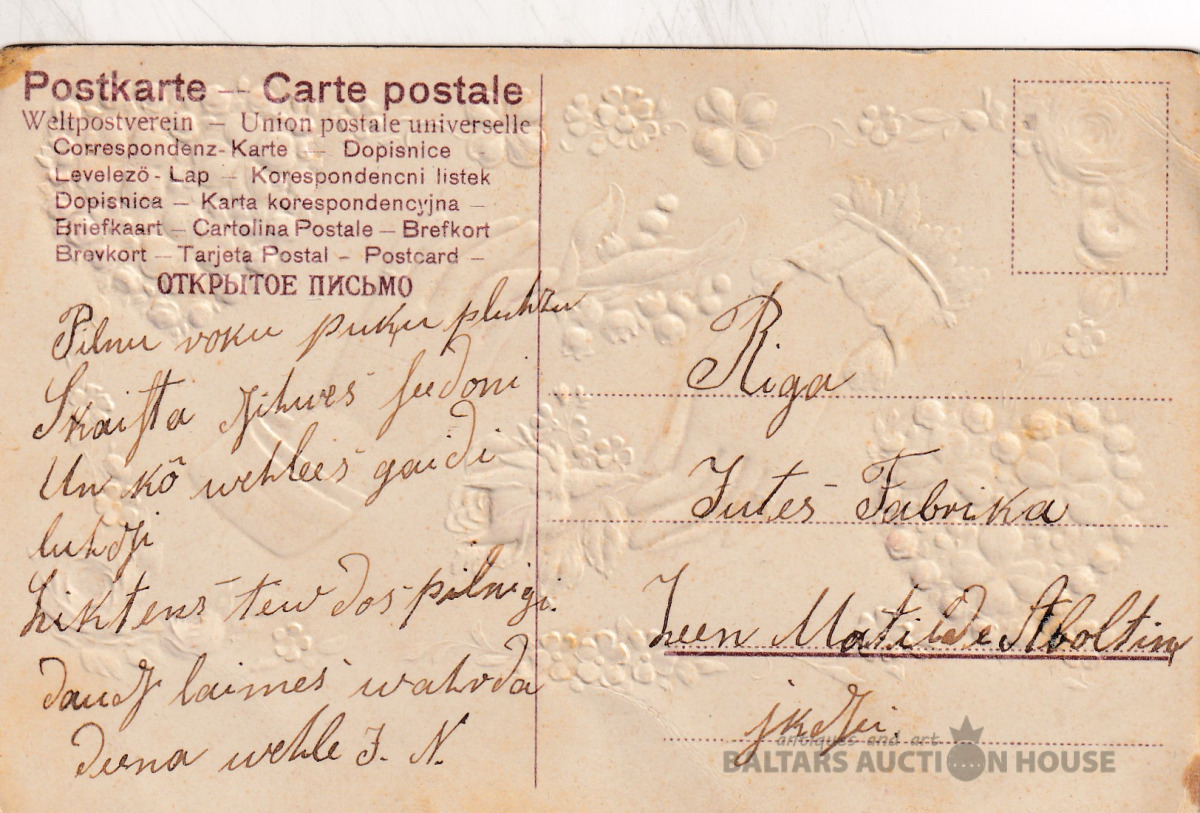 Postkarte — Carte postale
Weltpostverein — Union postale universelle
Correspondenz-Karte — Dopisnice
Levelező-Lap — Korespondencni listek
Dopisnica — Karta korespondencyjna —
Briefkaart — Cartolina Postale — Brefkort
Brevkort — Tarjeta Postal - Postcard —
ОТКРЫТОЕ ПИСЬМО
Pilnu roku puķu pluhzu
Skaista dsihwes seedoni
Un kô wehlees gaidi
luhdsi
Liktens tew dos pilnigi.
daudz laimes wahrda
deena wehle J. N.
Riga
Jutes Fabrika
Zeen Matilde Aboltin
jkdzei.
antiques and art
BALTARS AUCTION HOUSE